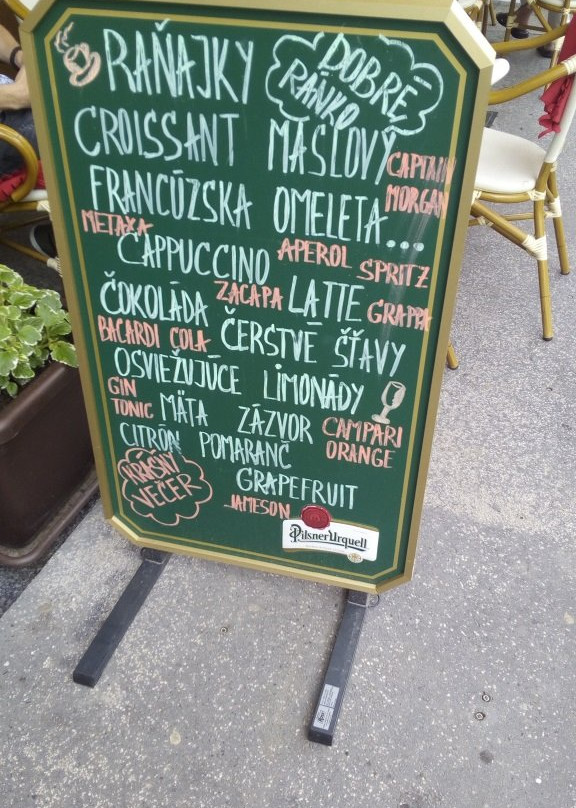 RAŇAJKY
DOBRÉ
RÁNKO
CROISSANT MASLOVÝ
CAPTAIN
MORGAN
FRANCÚZSKA OMELETA...
METAXA
CAPPUCCINO
APEROL SPRITZ
ČOKOLÁDA
ZACAPA
LATTE
GRAPPA
BACARDI COLA
ČERSTVÉ ŠŤAVY
OSVIEŽUJÚCE LIMONÁDY
GIN
TONIC
MÄTA ZÁZVOR
CAMPARI
ORANGE
CITRÓN POMARANČ
KRÁSNY
VEČER
GRAPEFRUIT
JAMESON
Pilsner Urquell